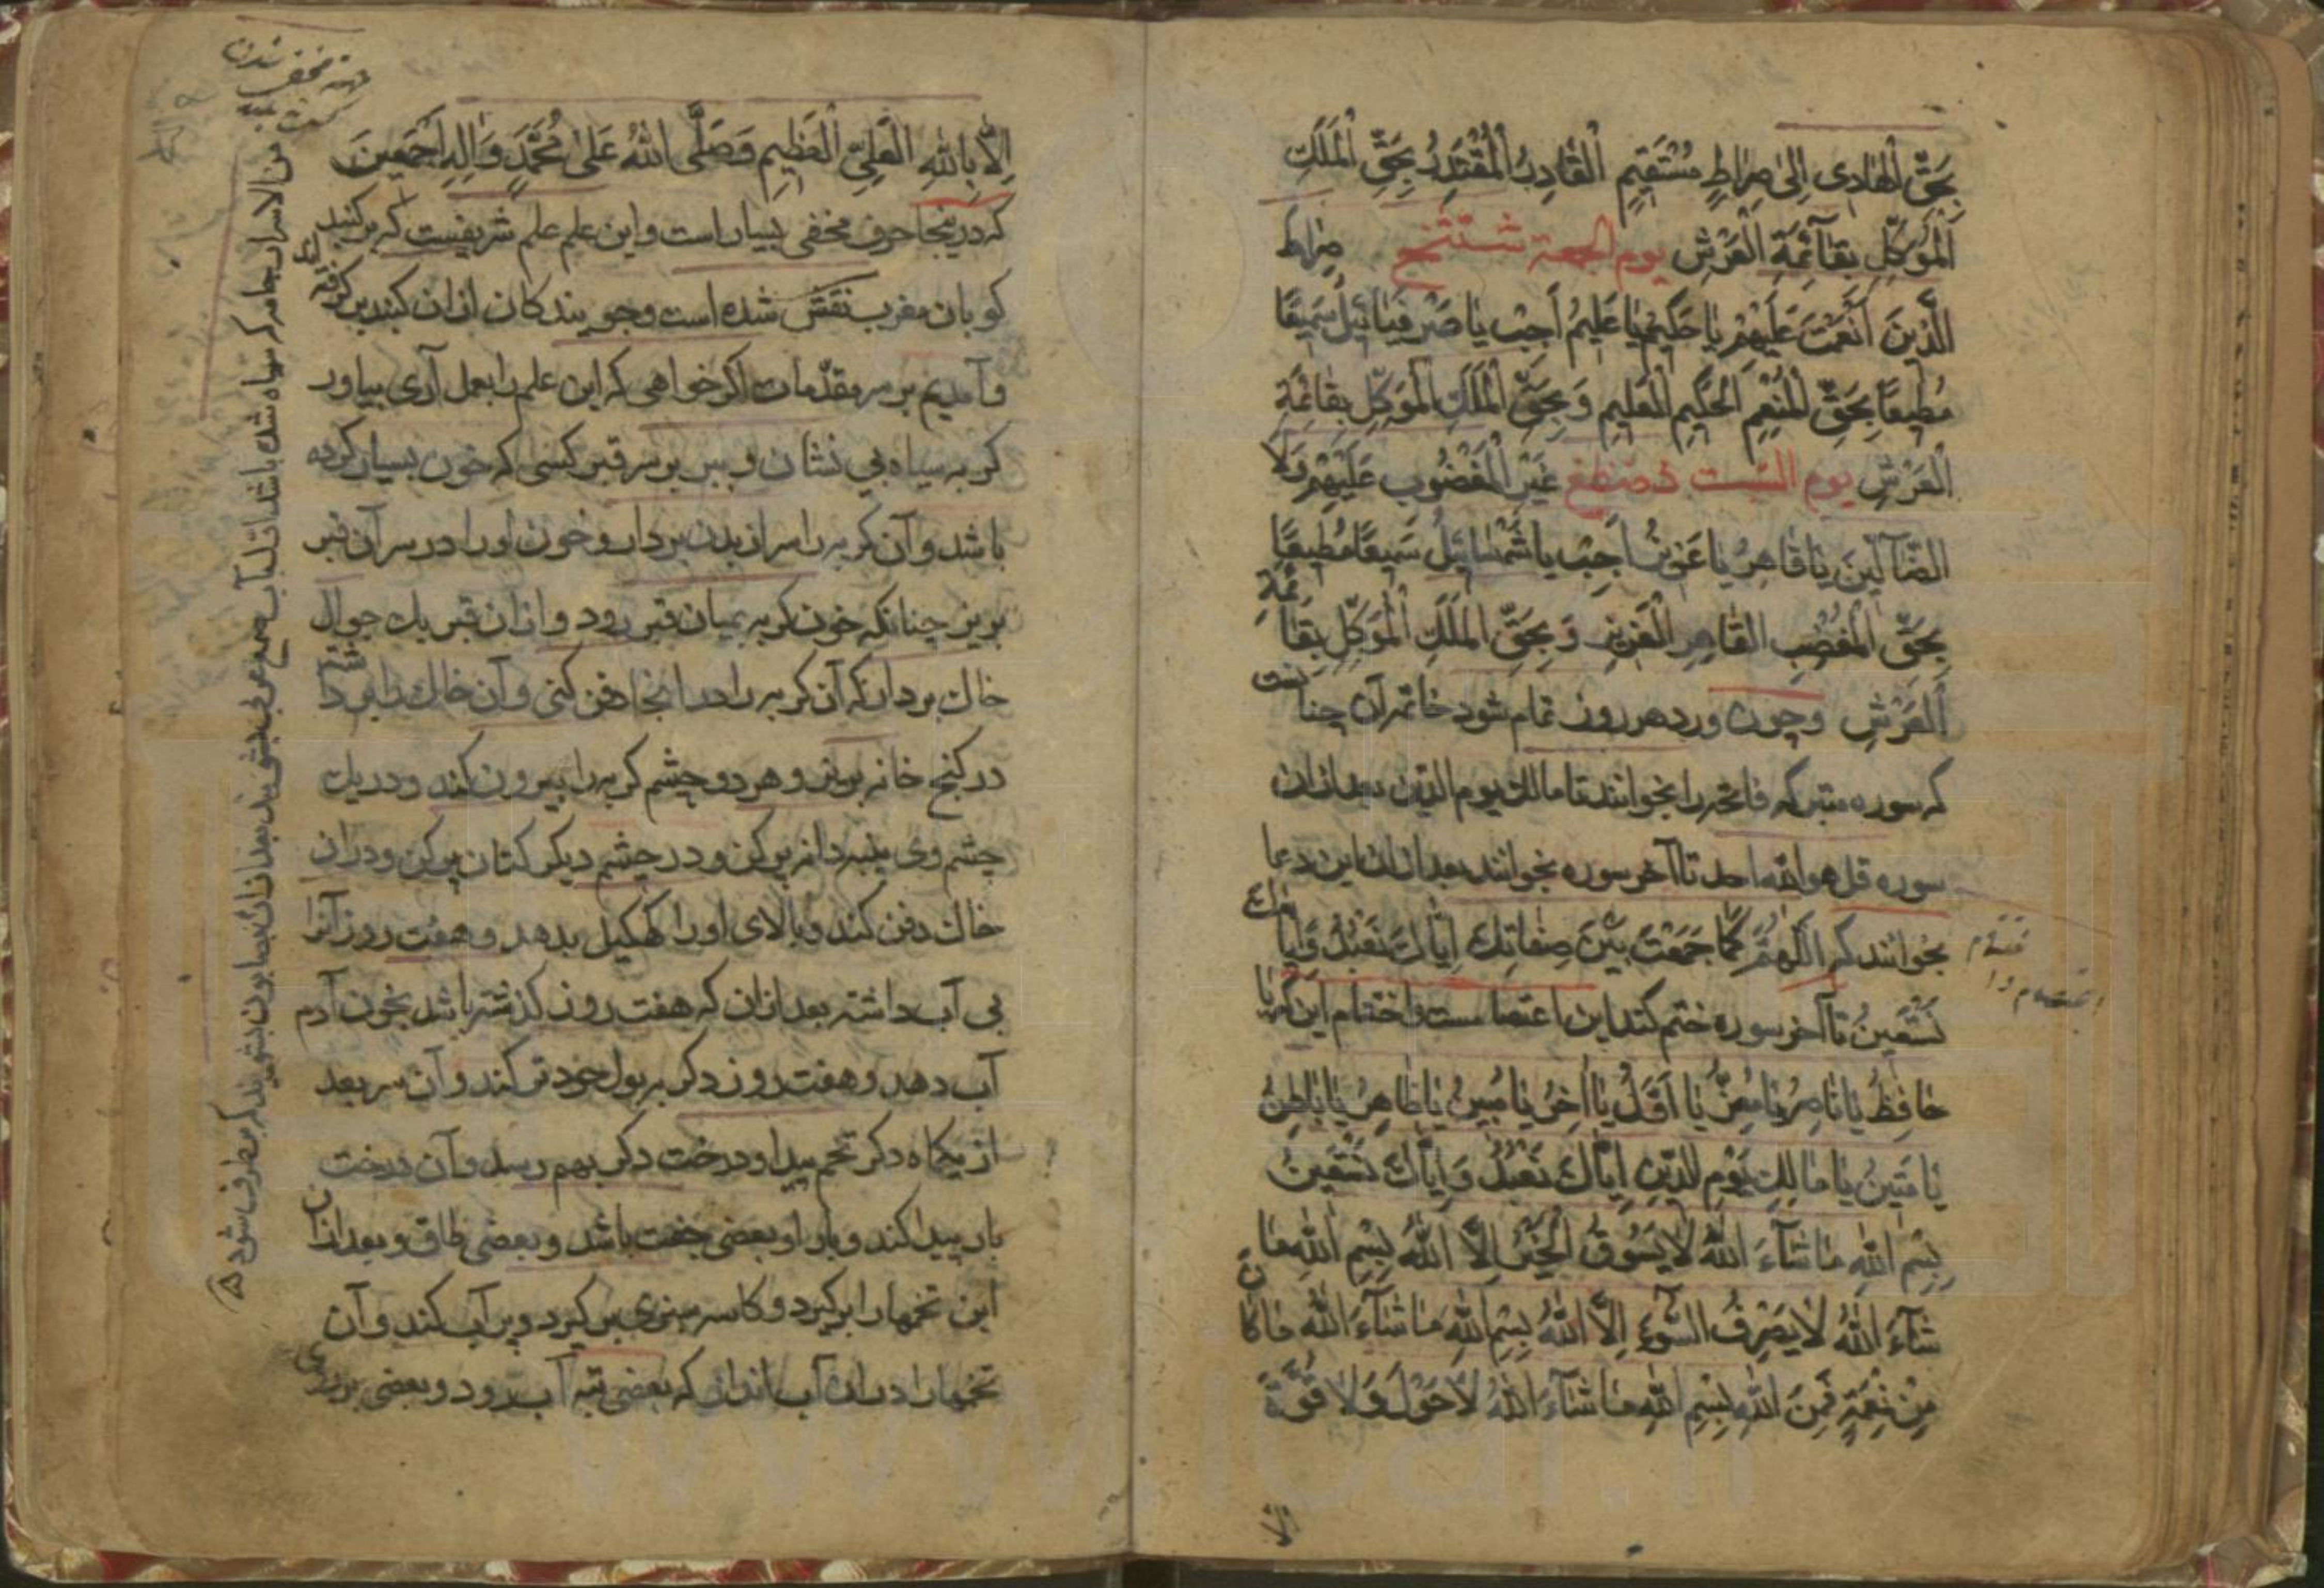 بِحَقِّ الْهَادِی اِلیٰ صِرَاطٍ مُسْتَقِیمٍ الْقَادِرُ الْمُقْتَدِرُ بِحَقِّ الْمَلَكِ
الْمُوَكِّلِ بِقَآئِمَةِ الْعَرْشِ یوم الجمعة شتثخ صِرَاطَ
الَّذِینَ اَنْعَمْتَ عَلَیْهِمْ یَا حَكِیمُ یَا عَلِیمُ اَجِبْ یَا صَرْفِیَائِیلُ سَمِیعًا
مُطِیعًا بِحَقِّ الْمُنْعِمِ الْحَكِیمِ الْعَلِیمِ وَ بِحَقِّ الْمَلَكِ الْمُوَكِّلِ بِقَائِمَةِ
الْعَرْشِ یوم السبت ذضظغ غَیْرِ الْمَغْضُوبِ عَلَیْهِمْ وَلَا
الضَّآلِّینَ یَا قَاهِرُ یَا عَزِیزُ اَجِبْ یا شَمْسَائِیلُ سَمِیعًا مُطِیعًا
بِحَقِّ الْمُغْضِبِ الْقَاهِرِ الْعَزِیزِ وَ بِحَقِّ الْمَلَكِ الْمُوَكِّلِ بِقَائِمَةِ
الْعَرْشِ وچون ورد هر روز تمام شود خاتمه آن چنانست
که سوره متبرکه فاتحه را بخوانند تا مالك یوم الدین بعد از ان
سوره قل هو الله احد تا آخر سوره بخوانند بعد از ان این دعا
بخوانند که اَللّهُمَّ كَمَا جَمَعْتَ بَیْنَ صِفَاتِكَ اِیَّاكَ نَعْبُدُ وَ اِیَّاكَ
نَسْتَعِینُ تا آخر سوره ختم کند این اعتصامست واختتام این که یا
حَافِظُ یَا نَاصِرُ یَا مُعِزُّ یَا اَوَّلُ یَا آخِرُ یَا مُبِینُ یَا ظَاهِرُ یَا بَاطِنُ
یَا مَتِینُ یَا مَالِكِ یَوْمِ الدِّینِ اِیَّاكَ نَعْبُدُ وَ اِیَّاكَ نَسْتَعِینُ
بِسْمِ اللهِ مَا شَآءَ اللهُ لَا یَسُوقُ الْخَیْرَ اِلَّا اللهُ بِسْمِ اللهِ مَا
شَآءَ اللهُ لَا یَصْرِفُ السُّوْءَ اِلَّا اللهُ بِسْمِ اللهِ مَا شَآءَ اللهُ مَا كَانَ
مِنْ نِعْمَةٍ فَمِنَ اللهِ بِسْمِ اللهِ مَا شَآءَ اللهُ لَا حَوْلَ وَلَا قُوَّةَ
الا
اِلَّا بِاللهِ الْعَلِیِّ الْعَظِیمِ وَصَلَّی اللهُ عَلیٰ مُحَمَّدٍ وَ آلِهِ اَجْمَعِینَ
که در ینجا حرف مخفی بسیار است واین علم علم شریفست که بر کنبد
کوبان مغرب نقش شده است وجویندکان از ان کنبد بر کرفته
وآمدیم بر سر مقدّمات اکر خواهی که این علم را بعمل آری بیاور
کربه سیاه بی نشان وببر بر سر قبر کسی که خون بسیار کرده
باشد وآن کربه را سر از بدن بردار وخون او را در سر آن قبر
بریز چنانکه خون کربه بمیان قبر رود واز ان قبر یك جوال
خاك بردار که آن کربه را در انجا دفن کنی وآن خاك را
در کنج خانه بریز وهر دو چشم کربه را بیرون کند ودر یك
چشم وی پنبه دانه پر کن ودر چشم دیکر کتان پر کن ودر ان
خاك دفن کند وبالای او را کهکیل بدهد وهفت روز آنرا
بی آب داشته بعد از ان که هفت روز کذشته باشد بخون آدم
آب دهد وهفت روز دکر به بول خود تر کند وآن سر بعد
از یکماه دکر تخم بیداو درخت دکر بهم رسد وآن درخت
بار پیدا کند وبار او بعضی جفت باشد وبعضی طاق وبعد از ان
این تخمها را برکیرد وکاسه سبزی بر کیرد وپر آب کند وآن
تخمها را در ان آب انداز که بعضی بته آب رود وبعضی بر روی
من الاسرار جامه که سیاه شده باشد از آب صمغ عربی بشوید بعد از ان بصابون بشویند که برطرف شود